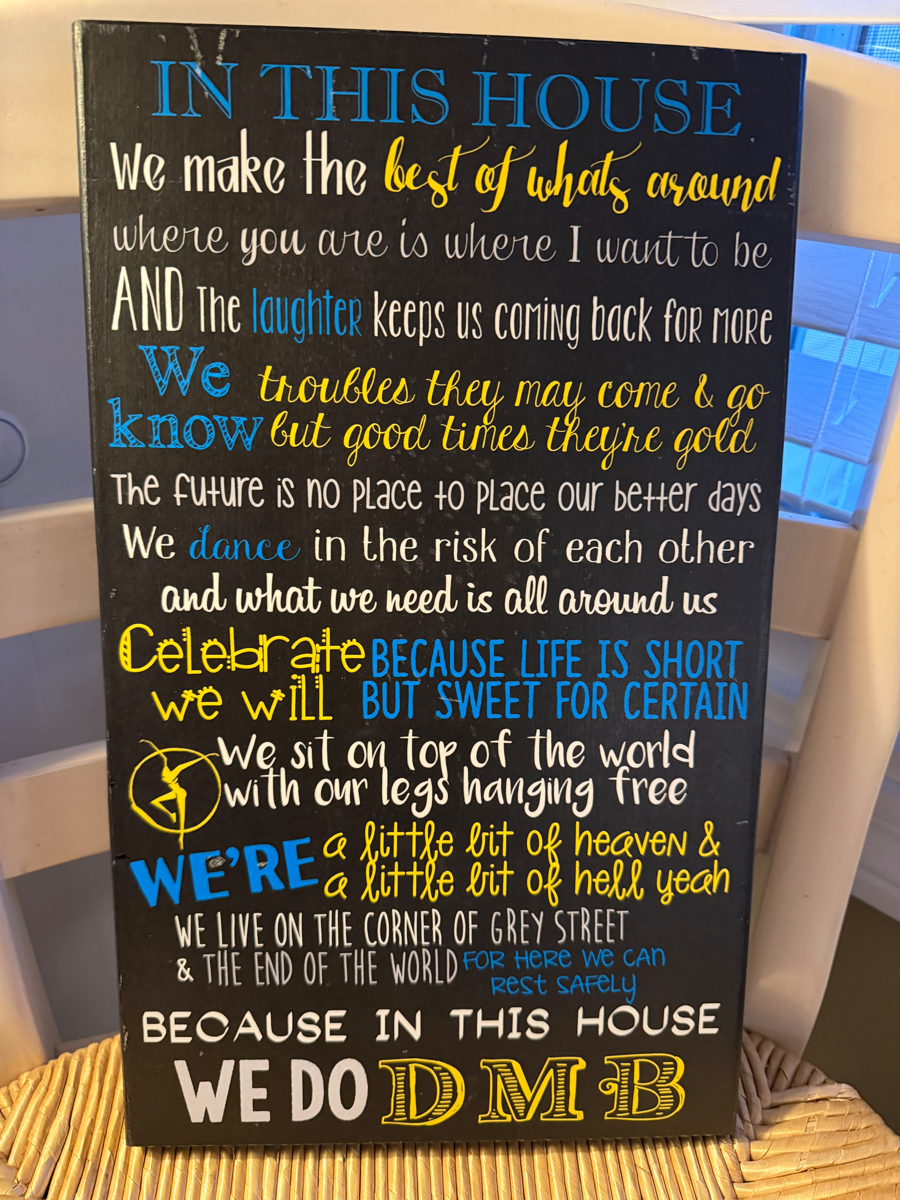 IN THIS HOUSE
We make the best of whats around
where you are is where I want to be
AND The laughter keeps us coming back for more
We know troubles they may come & go
but good times they're gold
The future is no place to place our better days
We dance in the risk of each other
and what we need is all around us
Celebrate we will BECAUSE LIFE IS SHORT
BUT SWEET FOR CERTAIN
We sit on top of the world
with our legs hanging free
WE'RE a little bit of heaven &
a little bit of hell yeah
WE LIVE ON THE CORNER OF GREY STREET
& THE END OF THE WORLD FOR HERE WE CAN
REST SAFELY
BECAUSE IN THIS HOUSE
WE DO DMB